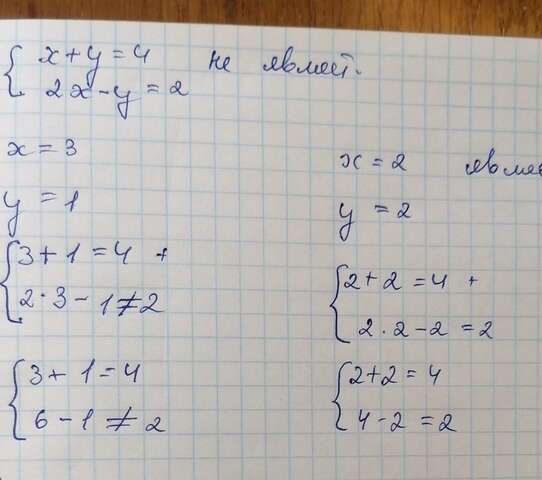 { x + y = 4 не являет.
2x - y = 2
x = 3
y = 1
{ 3 + 1 = 4 +
2 · 3 - 1 ≠ 2
{ 3 + 1 = 4
6 - 1 ≠ 2
x = 2 являе
y = 2
{ 2 + 2 = 4 +
2 · 2 - 2 = 2
{ 2 + 2 = 4
4 - 2 = 2